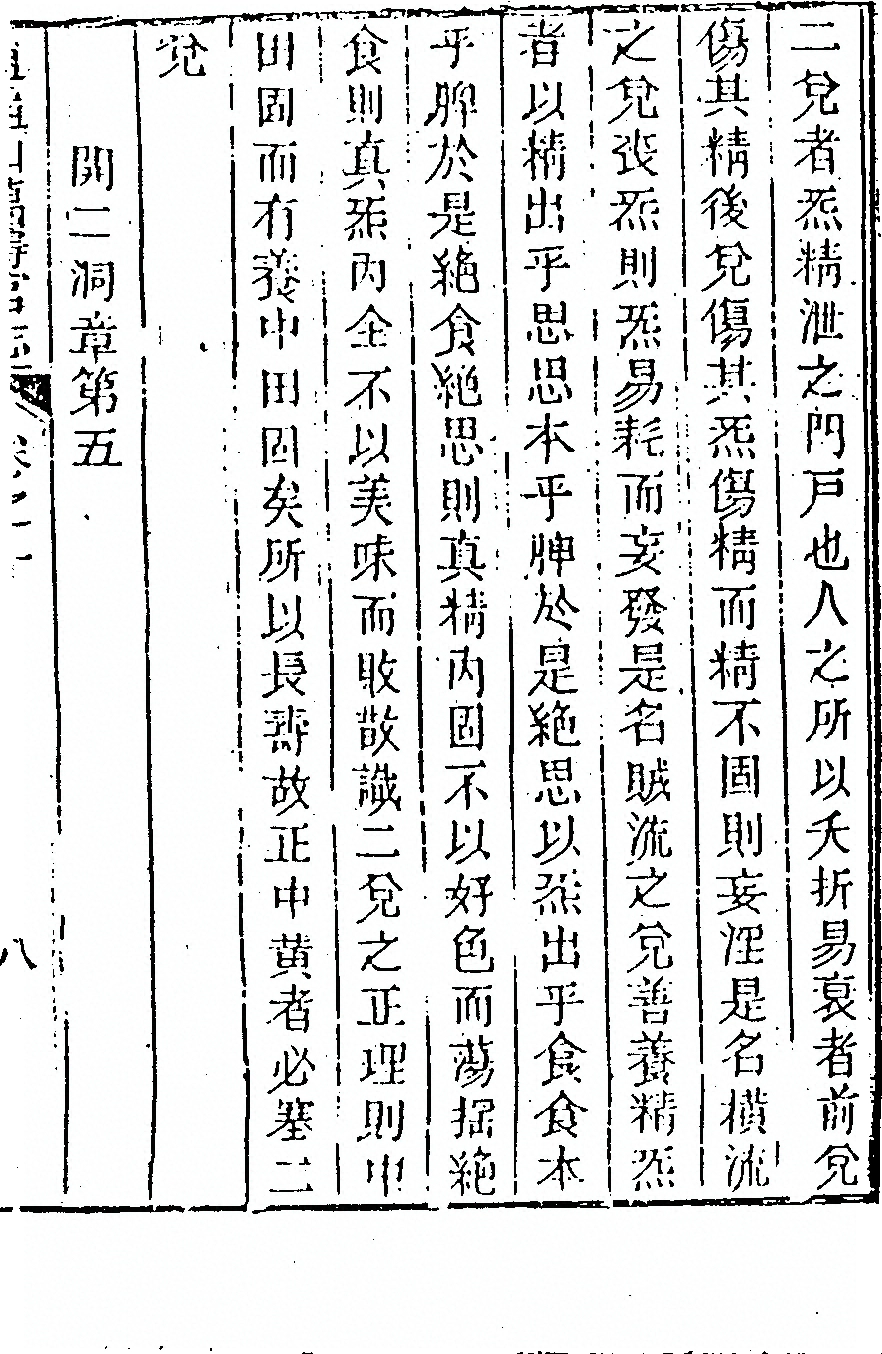 二兌者炁精泄之門戶也人之所以夭折易衰者前兌
傷其精後兌傷其炁傷精而精不固則妄淫是名橫流
之兌丧炁則炁易耗而妄發是名賊流之兌善養精炁
者以精出乎思思本乎脾於是絕思以炁出乎食食本
乎脾於是絕食絕思則真精內固不以好色而蕩搖絕
食則真炁內全不以美味而敗散識二兌之正理則中
田固而有養中田固矣所以長壽故正中黃者必塞二
兌
開二洞章第五
卷之一
八